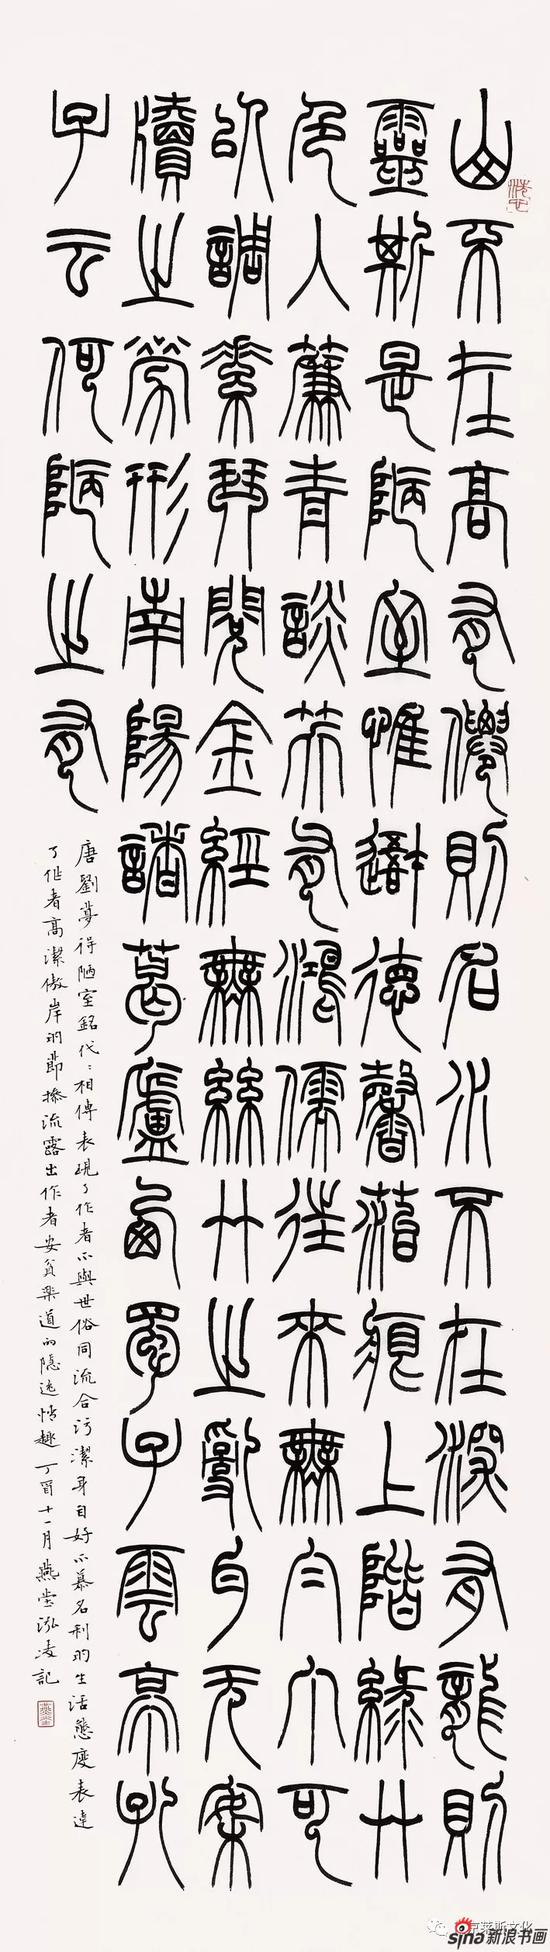 山不在高有僊則名水不在深有龍則
靈斯是陋室惟吾德馨蒩痕上階緣艸
色入簾青談笑有鴻儒往來無白丁可
以調素琴閱金經無絲竹之亂耳无案
牘之勞形南陽諸葛廬西蜀子雲亭孔
子云何陋之有
唐劉夢得陋室銘代〻相傳表現了作者不與世俗同流合污潔身自好不慕名利的生活態度表達
了作者高潔傲岸的節操流露出作者安貧樂道的隱逸情趣丁酉十一月燕堂泓凌記
sina新浪书画